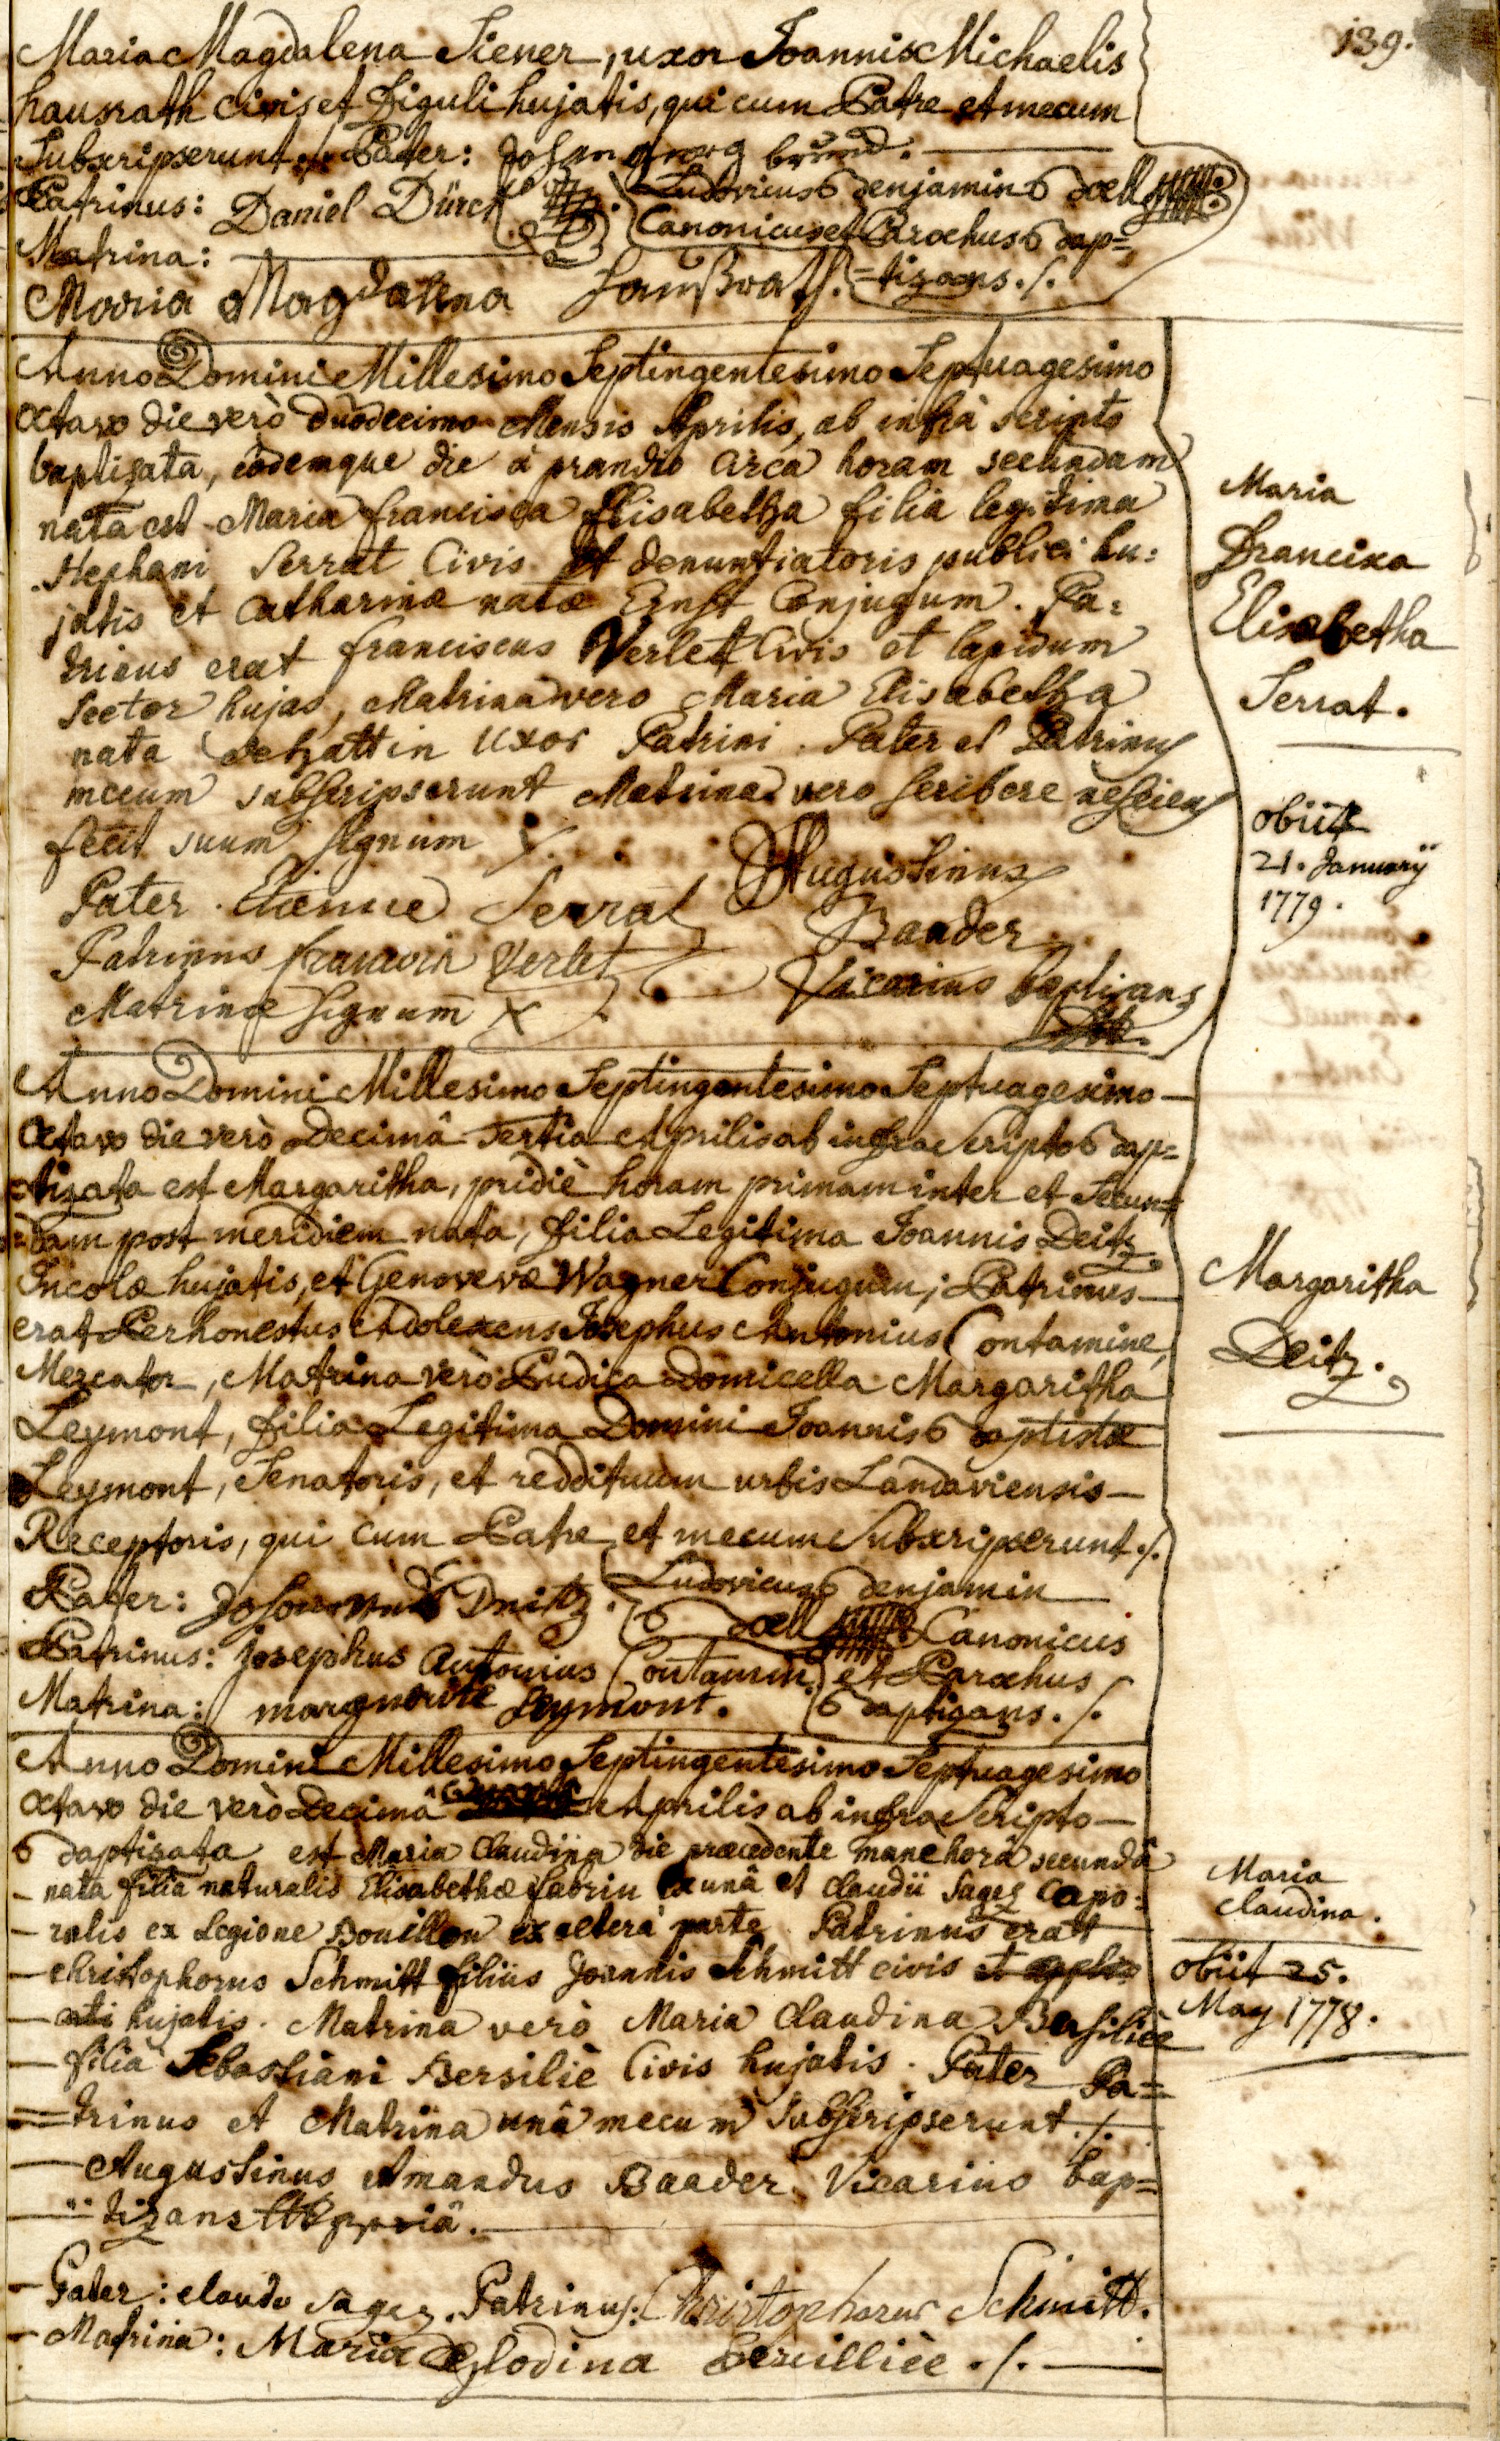 139.
Maria Magdalena Siener, uxor Joannis Michaelis
hausrath Civis et figuli hujatis, qui cum Patre et mecum
Subscripserunt ./. Pater: Johan georg
Patrinus: Daniel Dürck Ludovicus Benjamin Boell
Matrina: Canonicus et Parochus Bap=
Maria Magdalena =tizans ./.
Anno Domini Millesimo Septingentesimo Septuagesimo
octavo die verò duodecimo Mensis Aprilis, ab infrà scripto
baptizata, eodemque die à prandio circa horam secundam
nata est Maria francisca Elisabetha filia legitima
Stephani Serrat Civis et denuntiatoris publici hu:
jatis et Catharinæ natæ Ernst Conjugum. Pa:
trinus erat franciscus Verlet Civis et lapidum
Sector hujas, Matrina vero Maria Elisabetha
nata uxor Patrini. Pater et Patrinus
mecum subscripserunt Matrina vero scribere nesciens
fecit suum signum X.
Pater. Etienne Serrat Augustinus
Patrinus francois Verlet Baader
Matrinæ signum X Vicarius baptizans
Maria
Francisca
Elisabetha
Serrat.
obiit
21. Januarÿ
1779.
Anno Domini Millesimo Septingentesimo Septuagesimo
Octavo die verò Decimâ Tertia Aprilis ab infra Scripto Bap=
tizata est Margaritha, pridiè horam primam inter et Secun=
=dam post meridiem nata, filia Legitima Joannis Deitz
Incolæ hujatis, et Genovevæ Wagner Conjugum; Patrinus
erat Perhonestus Adolescens Josephus Antonius Contamine,
Mercator, Matrina verò Pudica Domicella Margaritha
Leymont, filia Legitima Domini Joannis Baptistæ
Leymont, Senatoris, et reddituum urbis Landaviensis
Receptoris, qui cum Patre et mecum Subscripserunt ./.
Pater: Ludovicus Benjamin
Boell Canonicus
Patrinus: josephus Antonius Contamin et Parochus
Matrina: marguerite Leymont. Baptizans ./.
Margaritha
Deitz.
Anno Domini Millesimo Septingentesimo Septuagesimo
Octavo die verò Decimâ Quartâ Aprilis ab infra Scripto
Baptizata est Maria Claudina die præcedente manè horâ secundâ
nata filia naturalis Elisabethæ fabrin ex unâ et Claudii Sagez Capo:
ralis ex Legione Bouillon ex alterâ parte. Patrinus erat
Christophorus Schmitt filius Joannis Schmitt civis et
hujatis. Matrina verò Maria Claudina Bersiliè
filia Sebastiani Bersiliè Civis hujatis. Pater Pa=
=trinus et Matrina unâ mecum Subscripserunt ./.
Augustinus Amandus Baader Vicarius bap=
tizans
Pater: claude sagez. Patrinus: Christophorus Schmitt.
Matrina: Maria Glodina Bersillièe ./.
Maria
Claudina.
obiit 25.
May 1778.